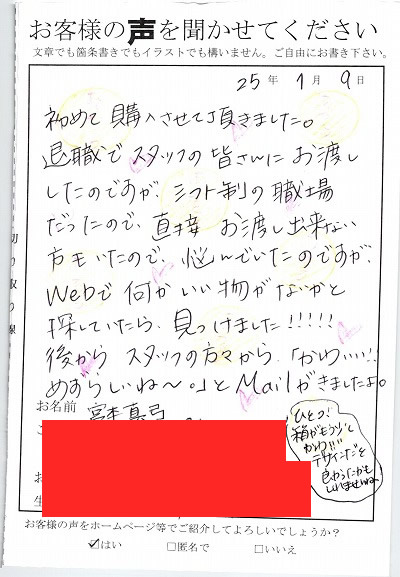 お客様の声を聞かせてください
文章でも箇条書きでもイラストでも構いません。ご自由にお書き下さい。
25年 1月 9日
初めて購入させて頂きました。
退職でスタッフの皆さんにお渡し
したのですが、シフト制の職場
だったので、直接お渡し出来ない
方もいたので、悩んでいたのですが、
Webで何かいい物がないかと
探していたら、見つけました!!!!!
後からスタッフの方々から、「かわいい!!
めずらしいね~。」とMailがきましたよ。
切り取り線
お名前
ひとつ!
箱がもう少し
かわいい
デザインだと
良かったかも
しれませんね。
お客様の声をホームページ等でご紹介してよろしいでしょうか?
☑はい □匿名で □いいえ